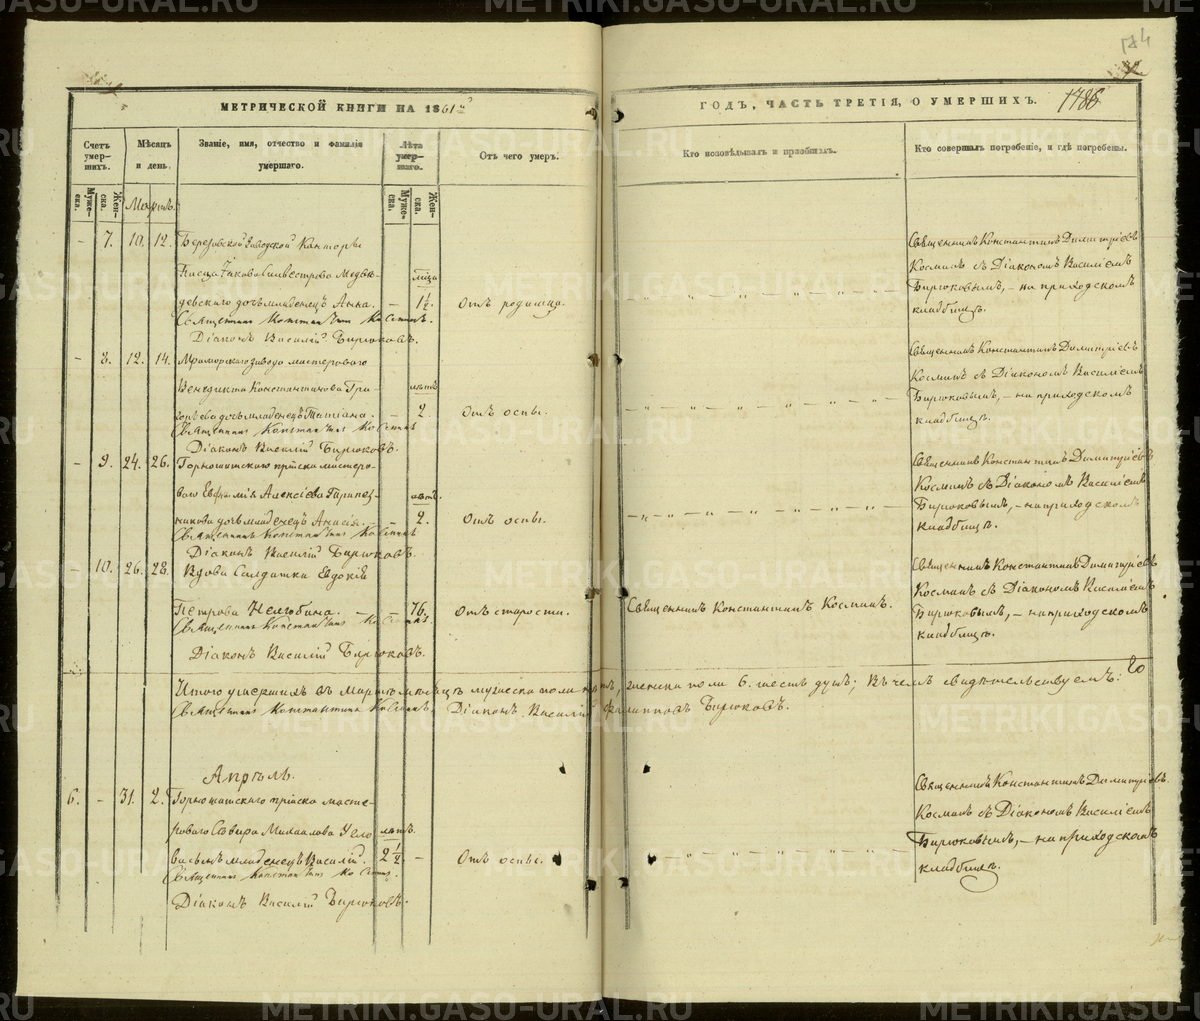 МЕТРИЧЕСКОЙ КНИГИ НА 1861й
ГОДЪ, ЧАСТЬ ТРЕТІЯ, О УМЕРШИХЪ.
Счетъ умершихъ.
Мѣсяцъ и день.
Званіе, имя, отчество и фамилія умершаго.
Лѣта умершаго.
Отъ чего умеръ.
Кто исповѣдывалъ и пріобщалъ.
Кто совершалъ погребеніе, и гдѣ погребены.
Мужеска.
Женска.
Мартъ.
Мужеска.
Женска.
– 7. 10. 12. Березовской Заводской Канторы
Писца Іакова Силвестрова Медвѣ-
девскаго дочь младенецъ Анна. – 1½. Отъ родимца.
Священникъ Константинъ Косминъ.
Діаконъ Василій Бирюковъ.
Священникъ Константинъ Димитріевъ
Косминъ съ Діакономъ Василіемъ
Бирюковымъ, – на приходскомъ
кладбищѣ.
– 8. 12. 14. Мраморскаго завода мастероваго
Венедикта Константинова Гри-
горьева дочь младенецъ Татіана. – лѣтъ 2. Отъ оспы.
Священникъ Константинъ Косминъ
Діаконъ Василій Бирюковъ.
Священникъ Константинъ Димитріевъ
Косминъ съ Діакономъ Василіемъ
Бирюковымъ, – на приходскомъ
кладбищѣ.
– 9. 24. 26. Горнощитскаго пріиска мастеро-
ваго Алексіева
дочь младенецъ – лѣтъ 2. Отъ оспы.
Священникъ Константинъ Косминъ
Діаконъ Василій Бирюковъ.
Священникъ Константинъ Димитріевъ
Косминъ съ Діакономъ Василіемъ
Бирюковымъ, – на приходскомъ
кладбищѣ.
– 10. 26. 28. Вдова Солдатка Евдокія
Петрова – – 76. Отъ старости.
Священникъ Константинъ Косминъ.
Діаконъ Василій Бирюковъ.
Священникъ Константинъ Косминъ.
Священникъ Константинъ Димитріевъ
Косминъ съ Діакономъ Василіемъ
Бирюковымъ, – на приходскомъ
кладбищѣ.
Итого умершихъ въ Мартѣ мѣсяцѣ мужеска пола женска пола 6. шесть душъ; Въ чемъ свидѣтельствуемъ:
Священникъ Константинъ Косминъ, Діаконъ Василій Филипповъ Бирюковъ.
Апрѣль.
6. – 31. 2. Горнощитскаго пріиска масте-
роваго Михаилова
сынъ младенецъ Василій. лѣтъ 2½ – Отъ оспы.
Священникъ Константинъ Косминъ.
Діаконъ Василій Бирюковъ.
Священникъ Константинъ Димитріевъ
Косминъ съ Діакономъ Василіемъ
Бирюковымъ, – на приходскомъ
кладбищѣ.
METRIKI.GASO-URAL.RU